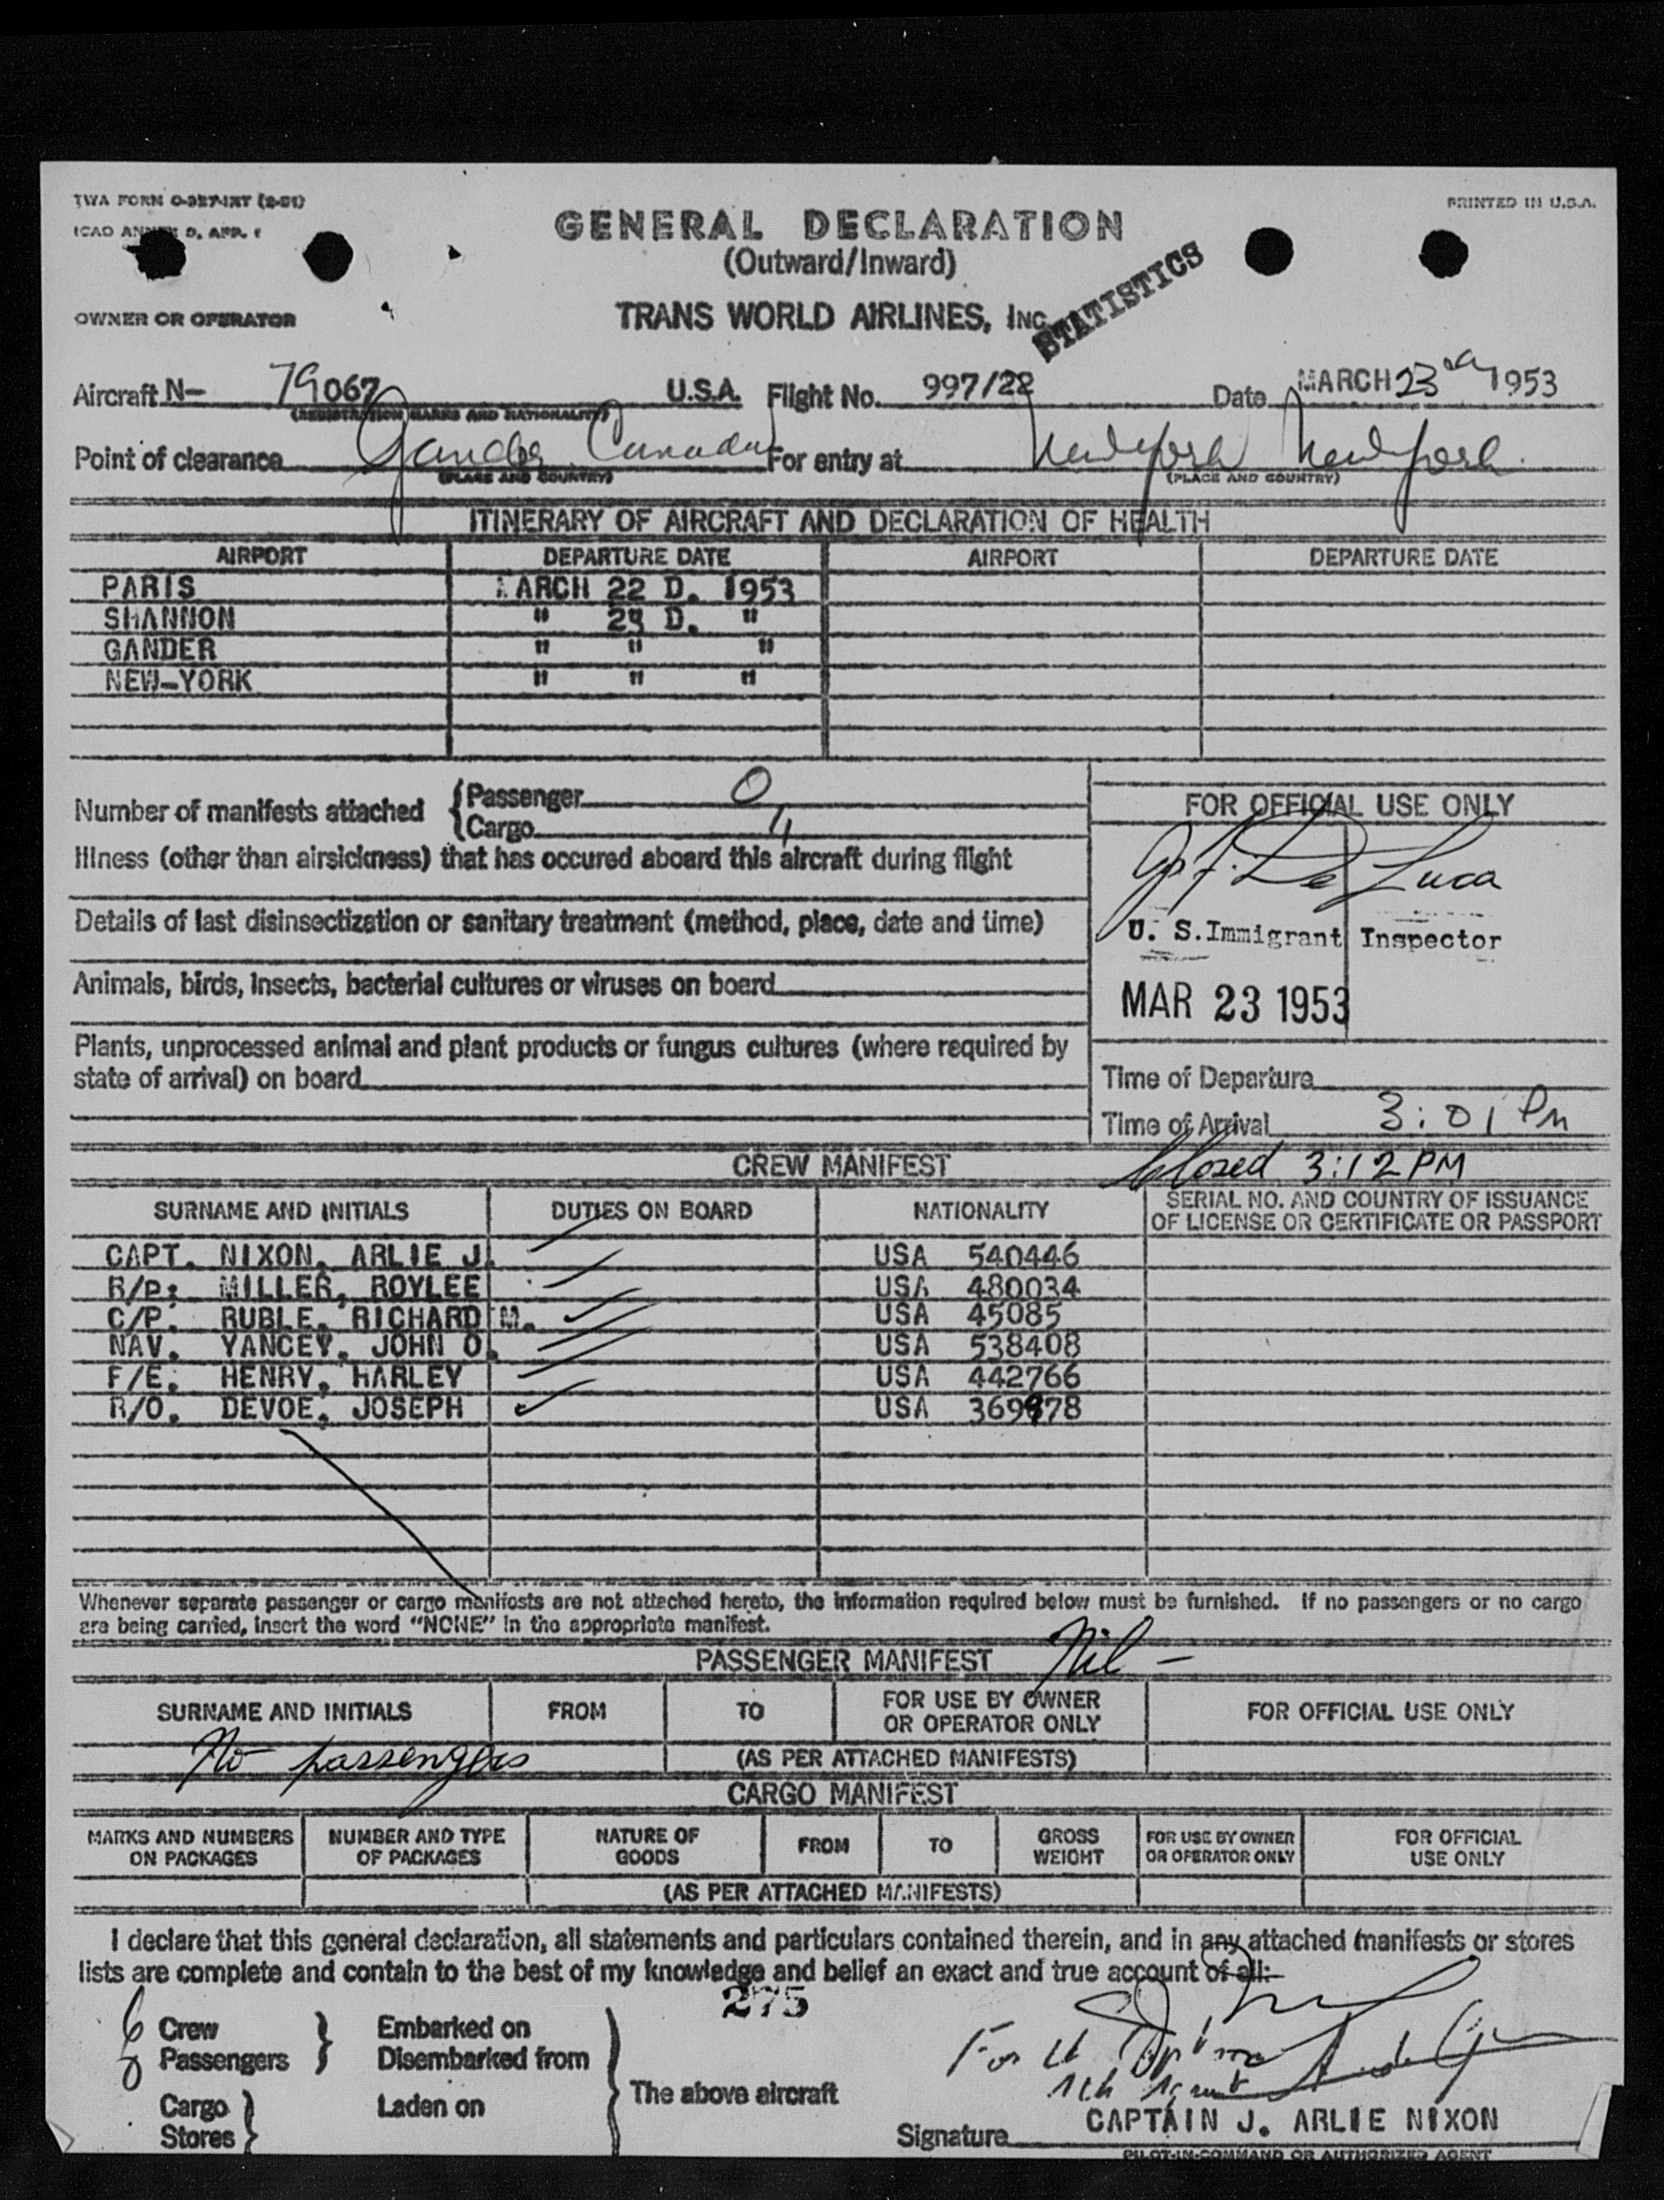 TWA FORM O-327-IXT (2-51)
PRINTED IN U.S.A.
ICAO ANNEX 9, APP. 1
GENERAL DECLARATION
(Outward/Inward)
STATISTICS
OWNER OR OPERATOR
TRANS WORLD AIRLINES, INC.
Aircraft N- 79067 U.S.A. Flight No. 997/22 Date MARCH 23 1953
(REGISTRATION MARKS AND NATIONALITY)
Point of clearance Gander Canada For entry at New York New York
(PLACE AND COUNTRY) (PLACE AND COUNTRY)
ITINERARY OF AIRCRAFT AND DECLARATION OF HEALTH
AIRPORT DEPARTURE DATE AIRPORT DEPARTURE DATE
PARIS MARCH 22 D. 1953
SHANNON " 23 D. "
GANDER " " "
NEW-YORK " " "
Number of manifests attached { Passenger 0
Cargo 4
FOR OFFICIAL USE ONLY
Illness (other than airsickness) that has occured aboard this aircraft during flight
De Luca
Details of last disinsectization or sanitary treatment (method, place, date and time)
U. S. Immigrant Inspector
Animals, birds, insects, bacterial cultures or viruses on board
MAR 23 1953
Plants, unprocessed animal and plant products or fungus cultures (where required by
state of arrival) on board
Time of Departure
Time of Arrival 3:01 Pm
CREW MANIFEST
Closed 3:12 PM
SURNAME AND INITIALS DUTIES ON BOARD NATIONALITY SERIAL NO. AND COUNTRY OF ISSUANCE
OF LICENSE OR CERTIFICATE OR PASSPORT
CAPT. NIXON, ARLIE J. USA 540446
R/P: MILLER, ROYLEE USA 480034
C/P. RUBLE, RICHARD M. USA 45085
NAV. YANCEY, JOHN O. USA 538408
F/E: HENRY, HARLEY USA 442766
R/O. DEVOE, JOSEPH USA 369978
Whenever separate passenger or cargo manifests are not attached hereto, the information required below must be furnished. If no passengers or no cargo
are being carried, insert the word "NONE" in the appropriate manifest.
PASSENGER MANIFEST Nil -
SURNAME AND INITIALS FROM TO FOR USE BY OWNER
OR OPERATOR ONLY FOR OFFICIAL USE ONLY
No passengers (AS PER ATTACHED MANIFESTS)
CARGO MANIFEST
MARKS AND NUMBERS
ON PACKAGES NUMBER AND TYPE
OF PACKAGES NATURE OF
GOODS FROM TO GROSS
WEIGHT FOR USE BY OWNER
OR OPERATOR ONLY FOR OFFICIAL
USE ONLY
(AS PER ATTACHED MANIFESTS)
I declare that this general declaration, all statements and particulars contained therein, and in any attached manifests or stores
lists are complete and contain to the best of my knowledge and belief an exact and true account of all:
275
6 Crew Embarked on
0 Passengers Disembarked from
The above aircraft
Cargo Laden on
Stores
CAPTAIN J. ARLIE NIXON
Signature
PILOT-IN-COMMAND OR AUTHORIZED AGENT